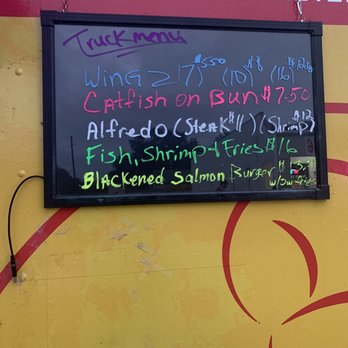 Truck menu
Wings (7) $550 (10) $8 (16)
Catfish on Bun $7.50
Alfredo (Steak $11) (Shrimp) $12
Fish, Shrimp & Fries $16
Blackened Salmon Burger $13
w/Sw-fries